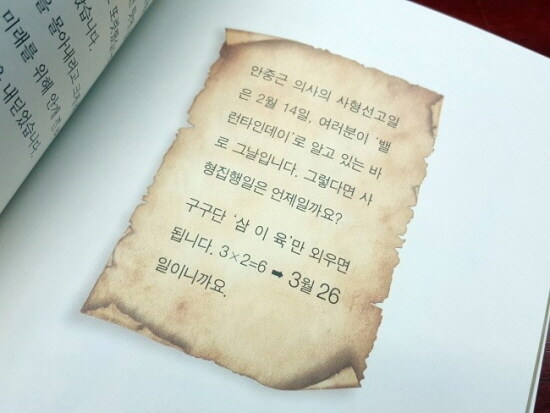 었습니다.
을 몰아내려고
미래를 위해
내딛었습니다.
안중근 의사의 사형선고일
은 2월 14일, 여러분이 '밸
런타인데이'로 알고 있는 바
로 그날입니다. 그렇다면 사
형집행일은 언제일까요?
구구단 '삼 이 육'만 외우면
됩니다. 3×2=6 ➡ 3월 26
일이니까요.